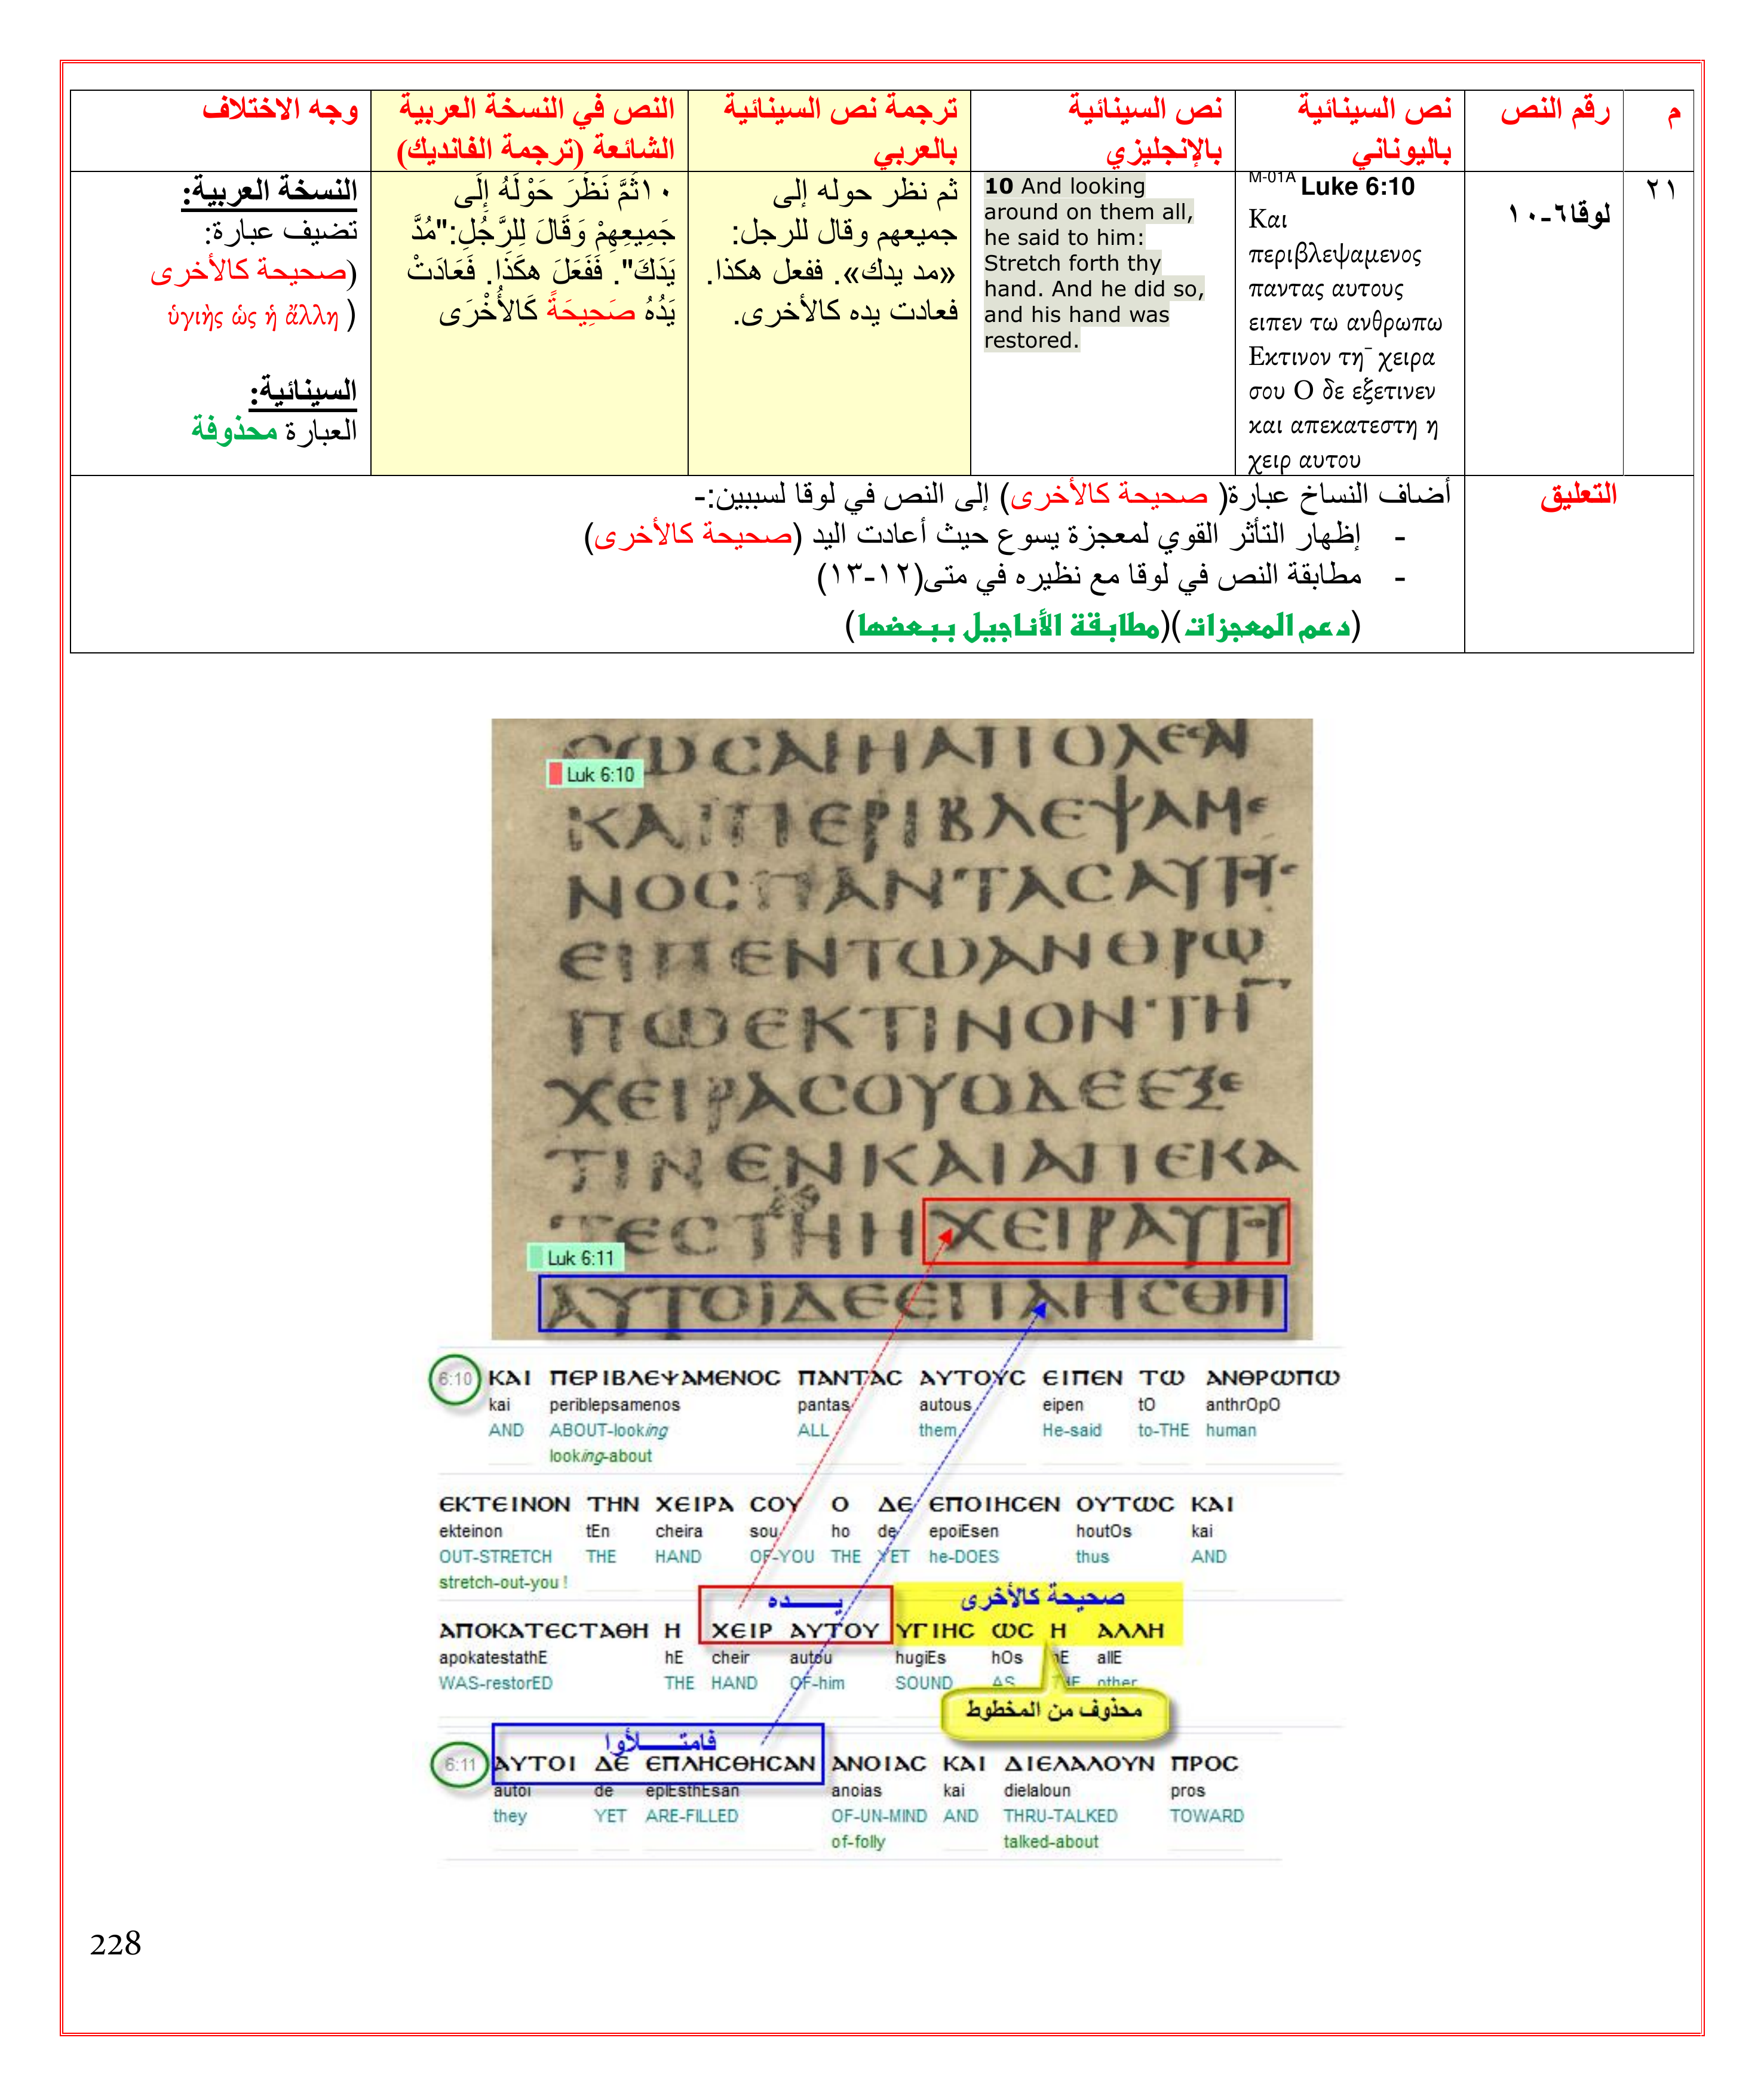 م
رقم النص
نص السينائية
باليوناني
نص السينائية
بالإنجليزي
ترجمة نص السينائية
بالعربي
النص في النسخة العربية
الشائعة (ترجمة الفانديك)
وجه الاختلاف
٢١
لوقا٦-١٠
M-01A Luke 6:10
Και
περιβλεψαμενος
παντας αυτους
ειπεν τω ανθρωπω
Εκτινον τη¯ χειρα
σου Ο δε εξετινεν
και απεκατεστη η
χειρ αυτου
10 And looking
around on them all,
he said to him:
Stretch forth thy
hand. And he did so,
and his hand was
restored.
ثم نظر حوله إلى
جميعهم وقال للرجل:
«مد يدك». ففعل هكذا.
فعادت يده كالأخرى.
١٠ثُمَّ نَظَرَ حَوْلَهُ إِلَى
جَمِيعِهِمْ وَقَالَ لِلرَّجُلِ:"مُدَّ
يَدَكَ". فَفَعَلَ هكَذَا. فَعَادَتْ
يَدُهُ صَحِيحَةً كَالأُخْرَى
النسخة العربية:
تضيف عبارة:
(صحيحة كالأخرى
ὑγιὴς ὡς ἡ ἄλλη )
السينائية:
العبارة محذوفة
التعليق
أضاف النساخ عبارة( صحيحة كالأخرى) إلى النص في لوقا لسببين:-
- إظهار التأثر القوي لمعجزة يسوع حيث أعادت اليد (صحيحة كالأخرى)
- مطابقة النص في لوقا مع نظيره في متى(١٢-١٣)
(دعم المعجزات)(مطابقة الأناجيل ببعضها)
ϹΩϹΑΙΗΑΠΟΛΕϹΑΙ
Luk 6:10
ΚΑΙΠΕΡΙΒΛΕΨΑΜΕ
ΝΟϹΠΑΝΤΑϹΑΥΤΟΥϹ
ΕΙΠΕΝΤΩΑΝΘΡΩ
ΠΩΕΚΤΙΝΟΝΤΗ¯
ΧΕΙΡΑϹΟΥΟΔΕΕΞΕ
ΤΙΝΕΝΚΑΙΑΠΕΚΑ
ΤΕϹΤΗΗΧΕΙΡΑΥΤΟΥ
Luk 6:11
ΑΥΤΟΙΔΕΕΠΛΗϹΘΗ
6:10 ΚΑΙ ΠΕΡΙΒΛΕΨΑΜΕΝΟϹ ΠΑΝΤΑϹ ΑΥΤΟΥϹ ΕΙΠΕΝ ΤΩ ΑΝΘΡΩΠΩ
kai periblepsamenos pantas autous eipen tO anthrOpO
AND ABOUT-looking ALL them He-said to-THE human
looking-about
ΕΚΤΕΙΝΟΝ ΤΗΝ ΧΕΙΡΑ ϹΟΥ Ο ΔΕ ΕΠΟΙΗϹΕΝ ΟΥΤΩϹ ΚΑΙ
ekteinon tEn cheira sou ho de epoiEsen houtOs kai
OUT-STRETCH THE HAND OF-YOU THE YET he-DOES thus AND
stretch-out-you !
يــــده صحيحة كالأخرى
ΑΠΟΚΑΤΕϹΤΑΘΗ Η ΧΕΙΡ ΑΥΤΟΥ ΥΓΙΗϹ ΩϹ Η ΑΛΛΗ
apokatestathE hE cheir autou hugiEs hOs hE allE
WAS-restorED THE HAND OF-him SOUND AS THE other
محذوف من المخطوط
فامتـــــلأوا
6:11 ΑΥΤΟΙ ΔΕ ΕΠΛΗϹΘΗϹΑΝ ΑΝΟΙΑϹ ΚΑΙ ΔΙΕΛΑΛΟΥΝ ΠΡΟϹ
autoi de eplEsthEsan anoias kai dielaloun pros
they YET ARE-FILLED OF-UN-MIND AND THRU-TALKED TOWARD
of-folly talked-about
228